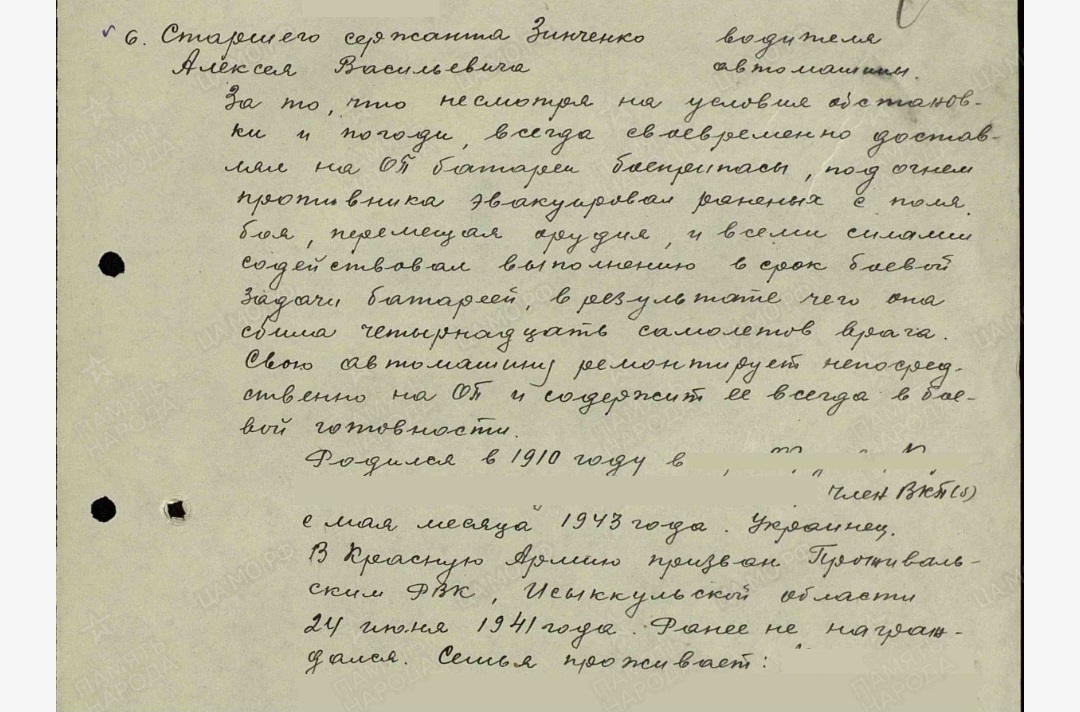 6. Старшего сержанта Зинченко водителя
Алексея Васильевича автомашины.
За то, что несмотря на условия обстанов-
ки и погоди, всегда своевременно достав-
лял на ОП батареи боеприпасы, под огнем
противника эвакуировал раненых с поля
боя, перемещая орудия, и всеми силами
содействовал выполнению в срок боевой
задачи батареей, в результате чего она
сбила четырнадцать самолетов врага.
Свою автомашину ремонтирует непосред-
ственно на ОП и содержит ее всегда в бое-
вой готовности.
Родился в 1910 году в
член ВКП(б)
с мая месяца 1943 года. Украинец.
В Красную Армию призван
ским РВК, Исыккульской области
24 июня 1941 года. Ранее не награж-
дался. Семья проживает: